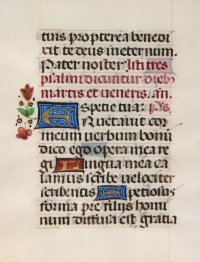 tuis propterea benedi
xit te deus in eternum.
Pater noster Isti tres
psalmi dicuntur dieb
martis et veneris. an.
Specie tua: Ps.
Eructavit cor
meum verbum bonū
dico ego opera mea re
gi Lingua mea ca
lamus scribe velociter
scribentis Speciosus
forma pre filiis homi
num diffusa est gratia